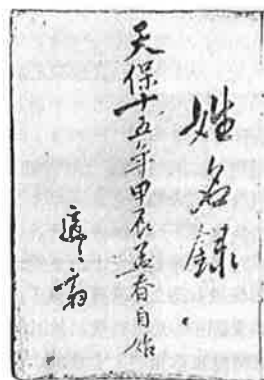 姓名録
天保十五年甲辰孟春自始
適々齋